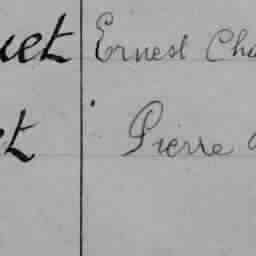 uet Ernest Cha
et Pierre